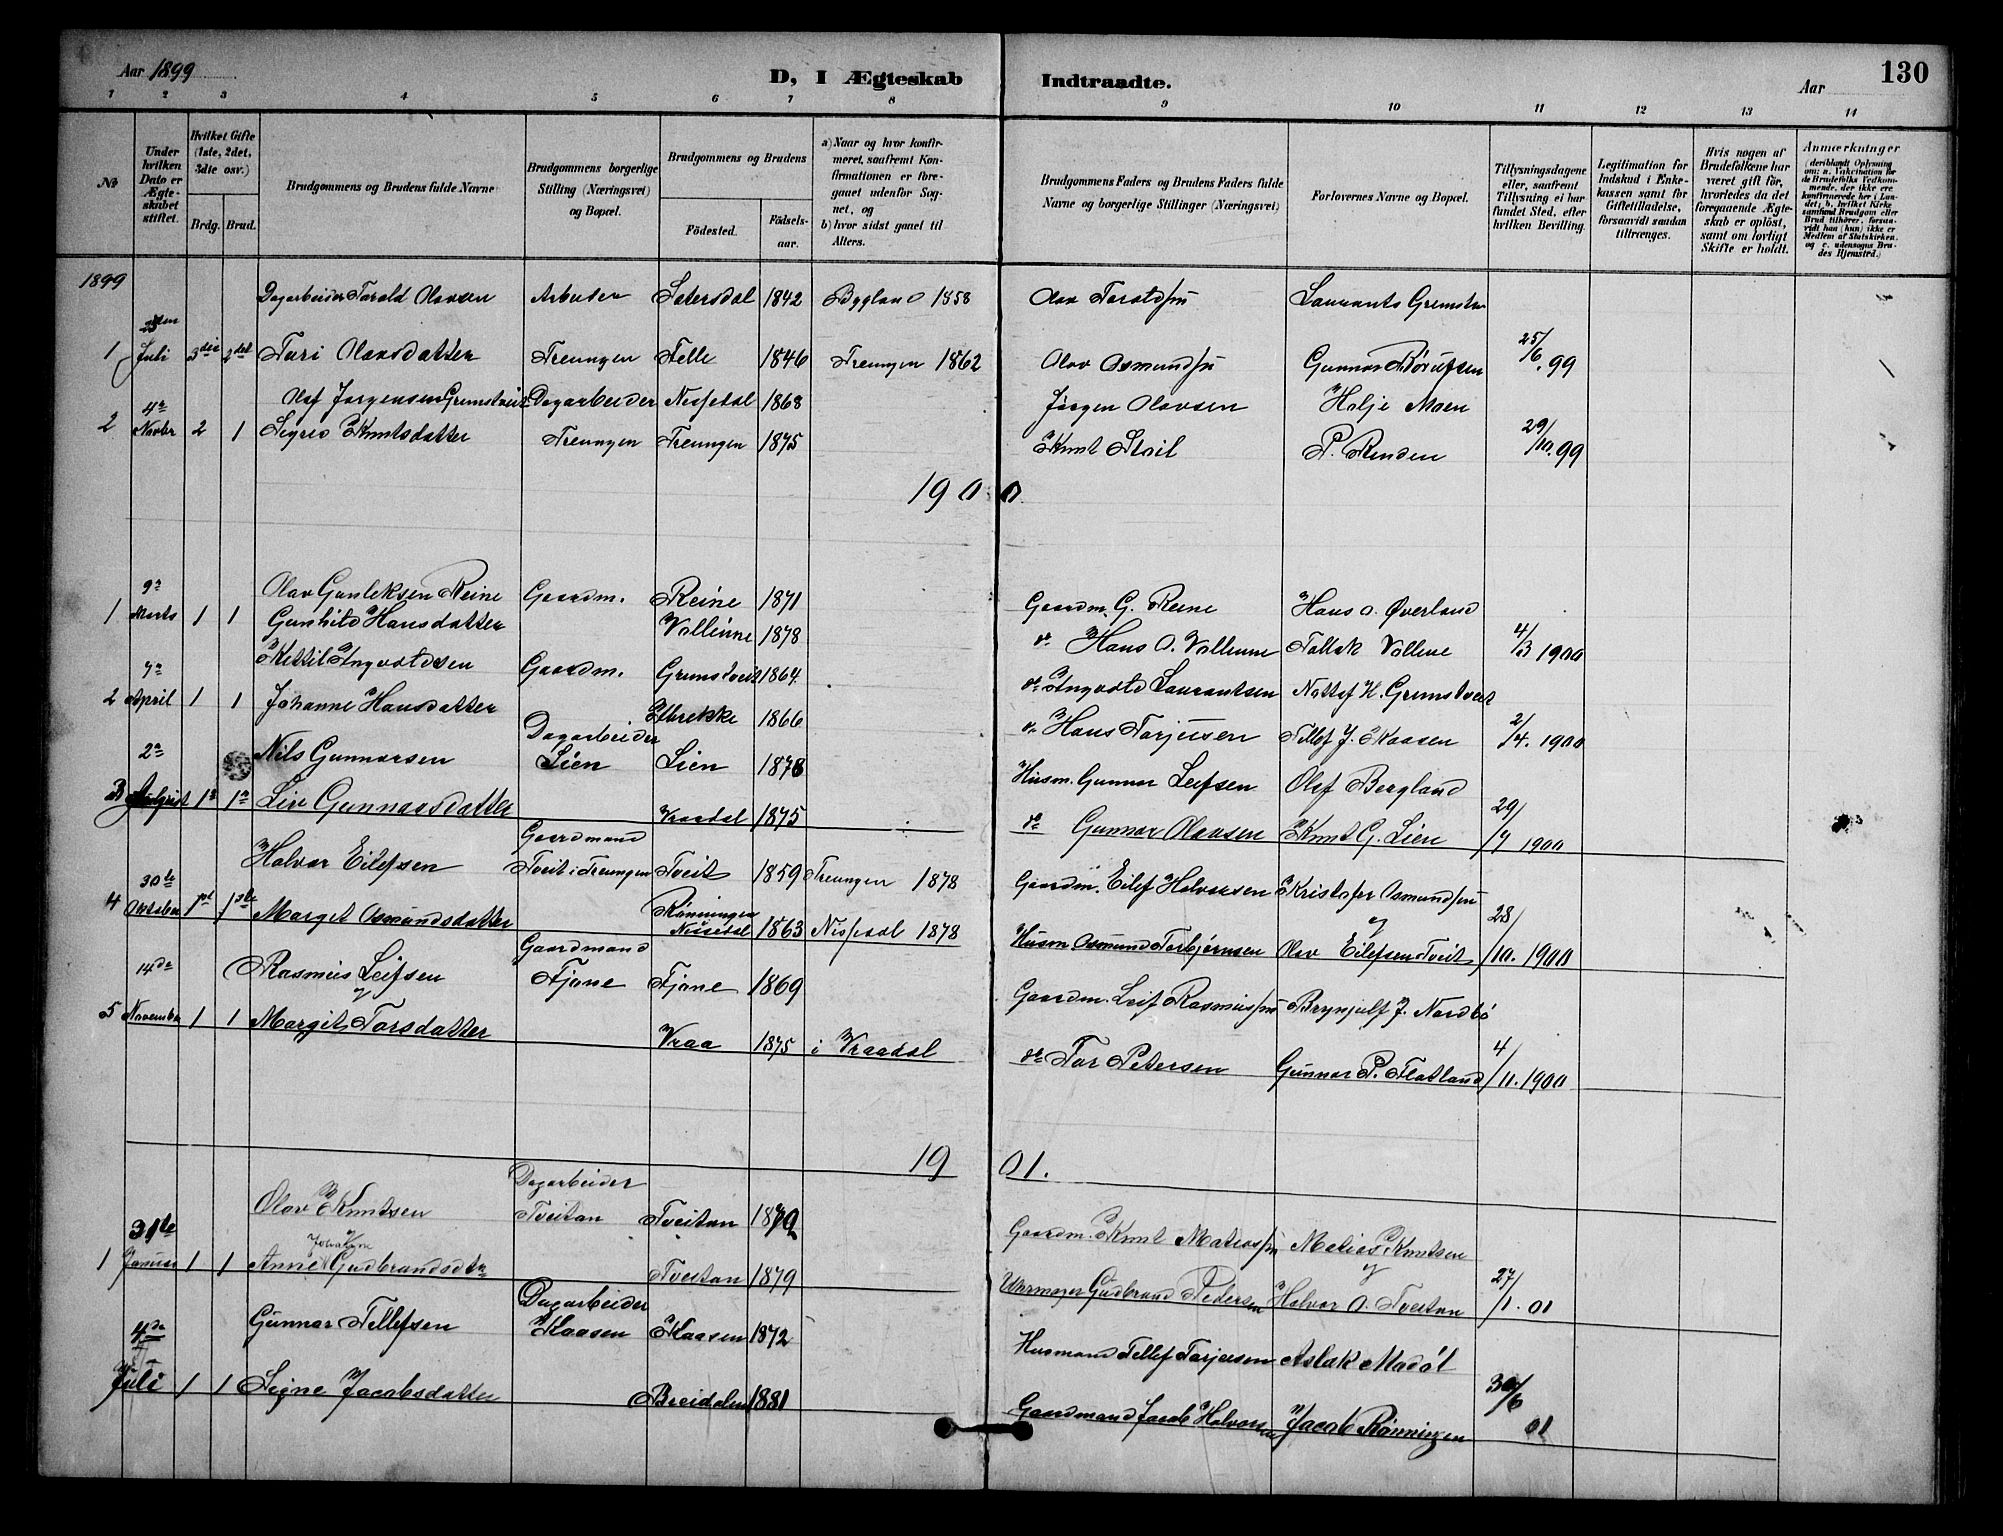 Aar 1899
D, I Ægteskab Indtraadte.
Aar
130
1 2 3 4 5 6 7 8 9 10 11 12 13 14
No
Under hvilken Dato er Ægteskabet stiftet.
Hvilket Gifte (1ste, 2det, 3die osv.)
Brdg. Brud.
Brudgommens og Brudens fulde Navne
Brudgommens borgerlige Stilling (Næringsvei) og Bopæl.
Brudgommens og Brudens
Fødested. Fødselsaar.
a) Naar og hvor konfirmeret, saafremt Konfirmationen er foregaaet udenfor Sognet, og
b) hvor sidst gaaet til Alters.
Brudgommens Faders og Brudens Faders fulde Navne og borgerlige Stillinger (Næringsvei)
Forlovernes Navne og Bopæl.
Tillysningsdagene eller, saafremt Tillysning ei har fundet Sted, efter hvilken Bevilling.
Legitimation for Indskud i Enkekassen samt for Giftetilladelse, forsaavidt saadan tiltrænges.
Hvis nogen af Brudefolkene har været gift før, hvorledes da det foregaaende Ægteskab er opløst, samt om lovligt Skifte er holdt.
Anmærkninger (deriblandt Oplysning om: a. Vakcination for de Brudefolks Vedkommende, der ikke ere konfirmerede her i Landet; b. hvilket Kirkesamfund Brudgom eller Brud tilhører, forsaavidt han (hun) ikke er Medlem af Statskirken, og c. udensogns Brudes Hjemsted.)
1899
Dagarbeider Tarald Olavsen Arbeider Setersdal 1842 Bygland 1858 Olav Taraldssn Laurants Gremstv
1 Juli 3die 2det Turi Olavsdatter Treungen Felle 1846 Treungen 1862 Olav Osmundssn Gunnar Rørufsen 25/6.99
Olaf Jørgensen Gremstveit Dagarbeider Nissedal 1868 Jørgen Olavsen Halje Moen
2 4de Novbr 2 1 Sigrid Knutsdatter Treungen Treungen 1875 Knut Stoil P. Renden 29/10.99
1900
9de Olav Gunleksen Reine Gaardm. Reine 1871 Gaardm. G. Reine Hans O. Øverland
1 Marts 1 1 Gunhild Hansdatter Vallinne 1878 do Hans O. Vallinne Tallak Vallene 4/3 1900
7de Kittil Ingvoldsen Gaardm. Gremstveit 1864 do Ingvold Laurantsen Nottof H. Gremstveit
2 April 1 1 Johanne Hansdatter Ibrekke 1866 do Hans Tarjeisen Tellef J. Kaasen 2/4. 1900
2de Nils Gunnarsen Dagarbeider Lien Lien 1878 Husm. Gunnar Leifsen Olaf Bergland
3 August 1te 1te Liv Gunnarsdatter Vraadal 1875 do Gunnar Olavsen Knut G. Lien 29/7 1900
Halvor Eilefsen Gaardmand Tveit i Treungen Tveit 1859 Treungen 1878 Gaardm. Eilef Halvorsen Kristofer Osmundssn
4 30te Oktober 1ste 1ste Marget Osmundsdatter Rønningen Nissedal 1863 Nissedal 1878 Husm Osmund Torbjørnsen og Olav Eilefsen Tveit 28/10. 1900
14de Rasmus Leifsen Gaardmand Fjone Fjone 1869 Gaardm. Leif Rasmussn Brynjulf J. Nordbø
5 November 1 1 Margit Tarsdatter Vraa 1875 i Vraadal do Tor Petersen Gunnar P. Flatland 4/11. 1900
1901.
Olav Knutsen Dagarbeider Tveitan Tveitan 1879 Gaardm. Knut Matiassn Matias Knutsen
1 31te Januar 1 1 Anne Gudbrandsdtr Tveitan 1879 Uhrmager Gudbrand Pedersen og Halvor O. Tveitan 27/1. 01
Gunnar Tellefsen Dagarbeider Kaasen Kaasen 1872 Husmand Tellef Tarjeisen Aslak Madøl
4de Juli 1 1 Signe Jacobsdatter Breidalen 1881 Gaardmand Jacob Halvorsen Jacob Rønningen 30/6 01